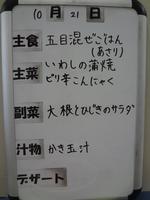 10月21日
主食 五目混ぜごはん
(あさり)
主菜 いわしの蒲焼
ピリ辛こんにゃく
副菜 大根とひじきのサラダ
汁物 かき玉汁
デザート